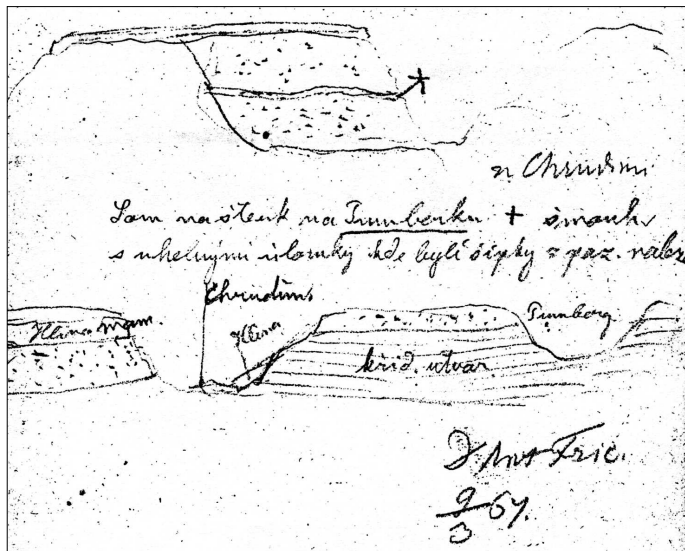 +
u Chrudimi
Lom na štěrk na Pumberku + šmouh
s uhelnými úlomky kde byli šipky z paz. nalez
Chrudim
Hlina mam.
Hlina
Pumberg
křid. utvar.
D Ant Fric.
9/3 67.